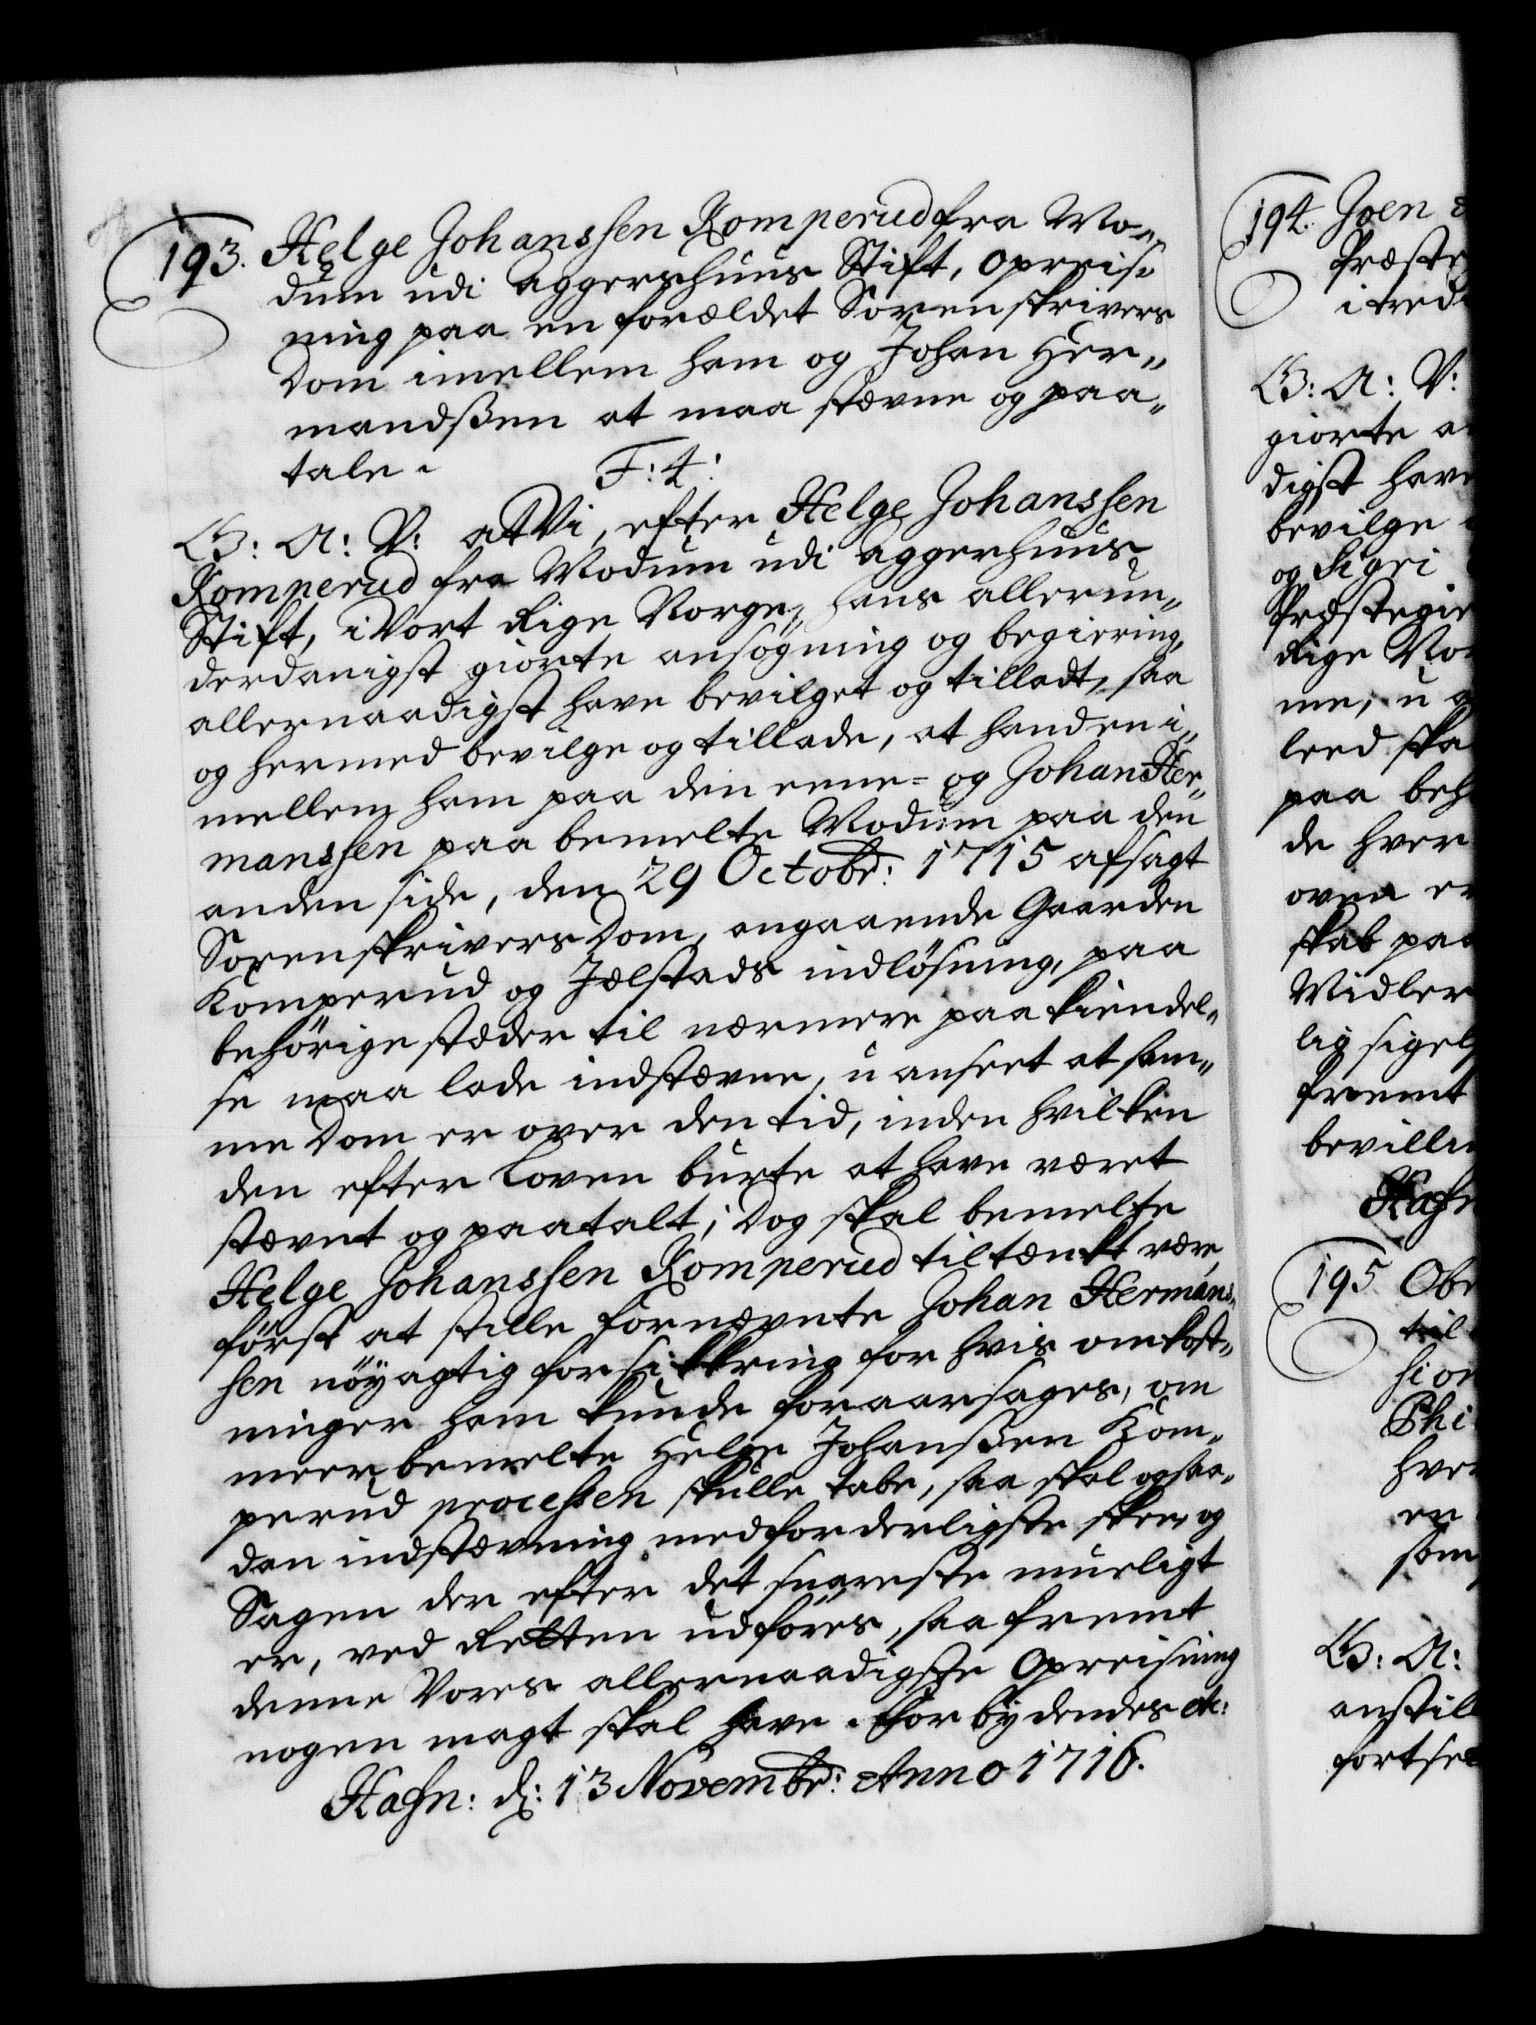 193. Helge Johanssen Komperud fra Mo-
dum udi Aggershuus Stift, Opreis-
ning paa en forældet Sorenskrivers
Dom imellem ham og Johan Her-
mandssen at maa stævne og paa-
tale.
F: 4:
G: A: V: at Vi, efter Helge Johanssen
Komperud fra Modum udi Aggerhuus
Stift, i Vort Rige Norge, hans allerun-
derdanigst giorte ansøgning og begiering,
allernaadigst have bevilget og tilladt, saa
og hermed bevilge og tillade, at hand en i-
mellem ham paa den eene- og Johan Her-
manssen paa bemelte Modum paa den
anden side, den 29 Octobr: 1715 afsagt
Sorenskrivers Dom, angaaende Gaarden
Komperud og Jelstads indlösning, paa
behörige stæder til nærmere paakiendel-
se maa lade indstævne, uanseet at sam-
me Dom er over den tid, inden hvilken
den efter Loven burte at have været
stævnet og paatalt; Dog skal bemelte
Helge Johanssen Komperud tiltænkt være,
först at stille fornævnte Johan Hermans-
sen nöyagtig forsikkring for hvis omkost-
ninger ham kunde foraarsages, om
meerbemelte Helge Johanssen Kom-
perud processen skulle tabe, saa skal og saa-
dan indstævning med forderligste skee, og
Sagen der efter det snareste mueligt
er, ved Retten udföres, saafremt
denne Vores allernaadigste Opreisning
nogen magt skal have. Forbydendes etc:
Hafn: d: 13 Novembr: Anno 1716.
194. Joen
Præste
i tred
G: A: V:
giorte a
digst have
bevilge
og Sigri
Præstegie
Rige Nor
me, u
leed ska
paa beh
de hver
oven er
skab paa
Midler
lig sigel
fremt
bevilli
Hafn
195 Obr
til
hion
Phi
hver
er
som
G: A:
anstil
fortsel